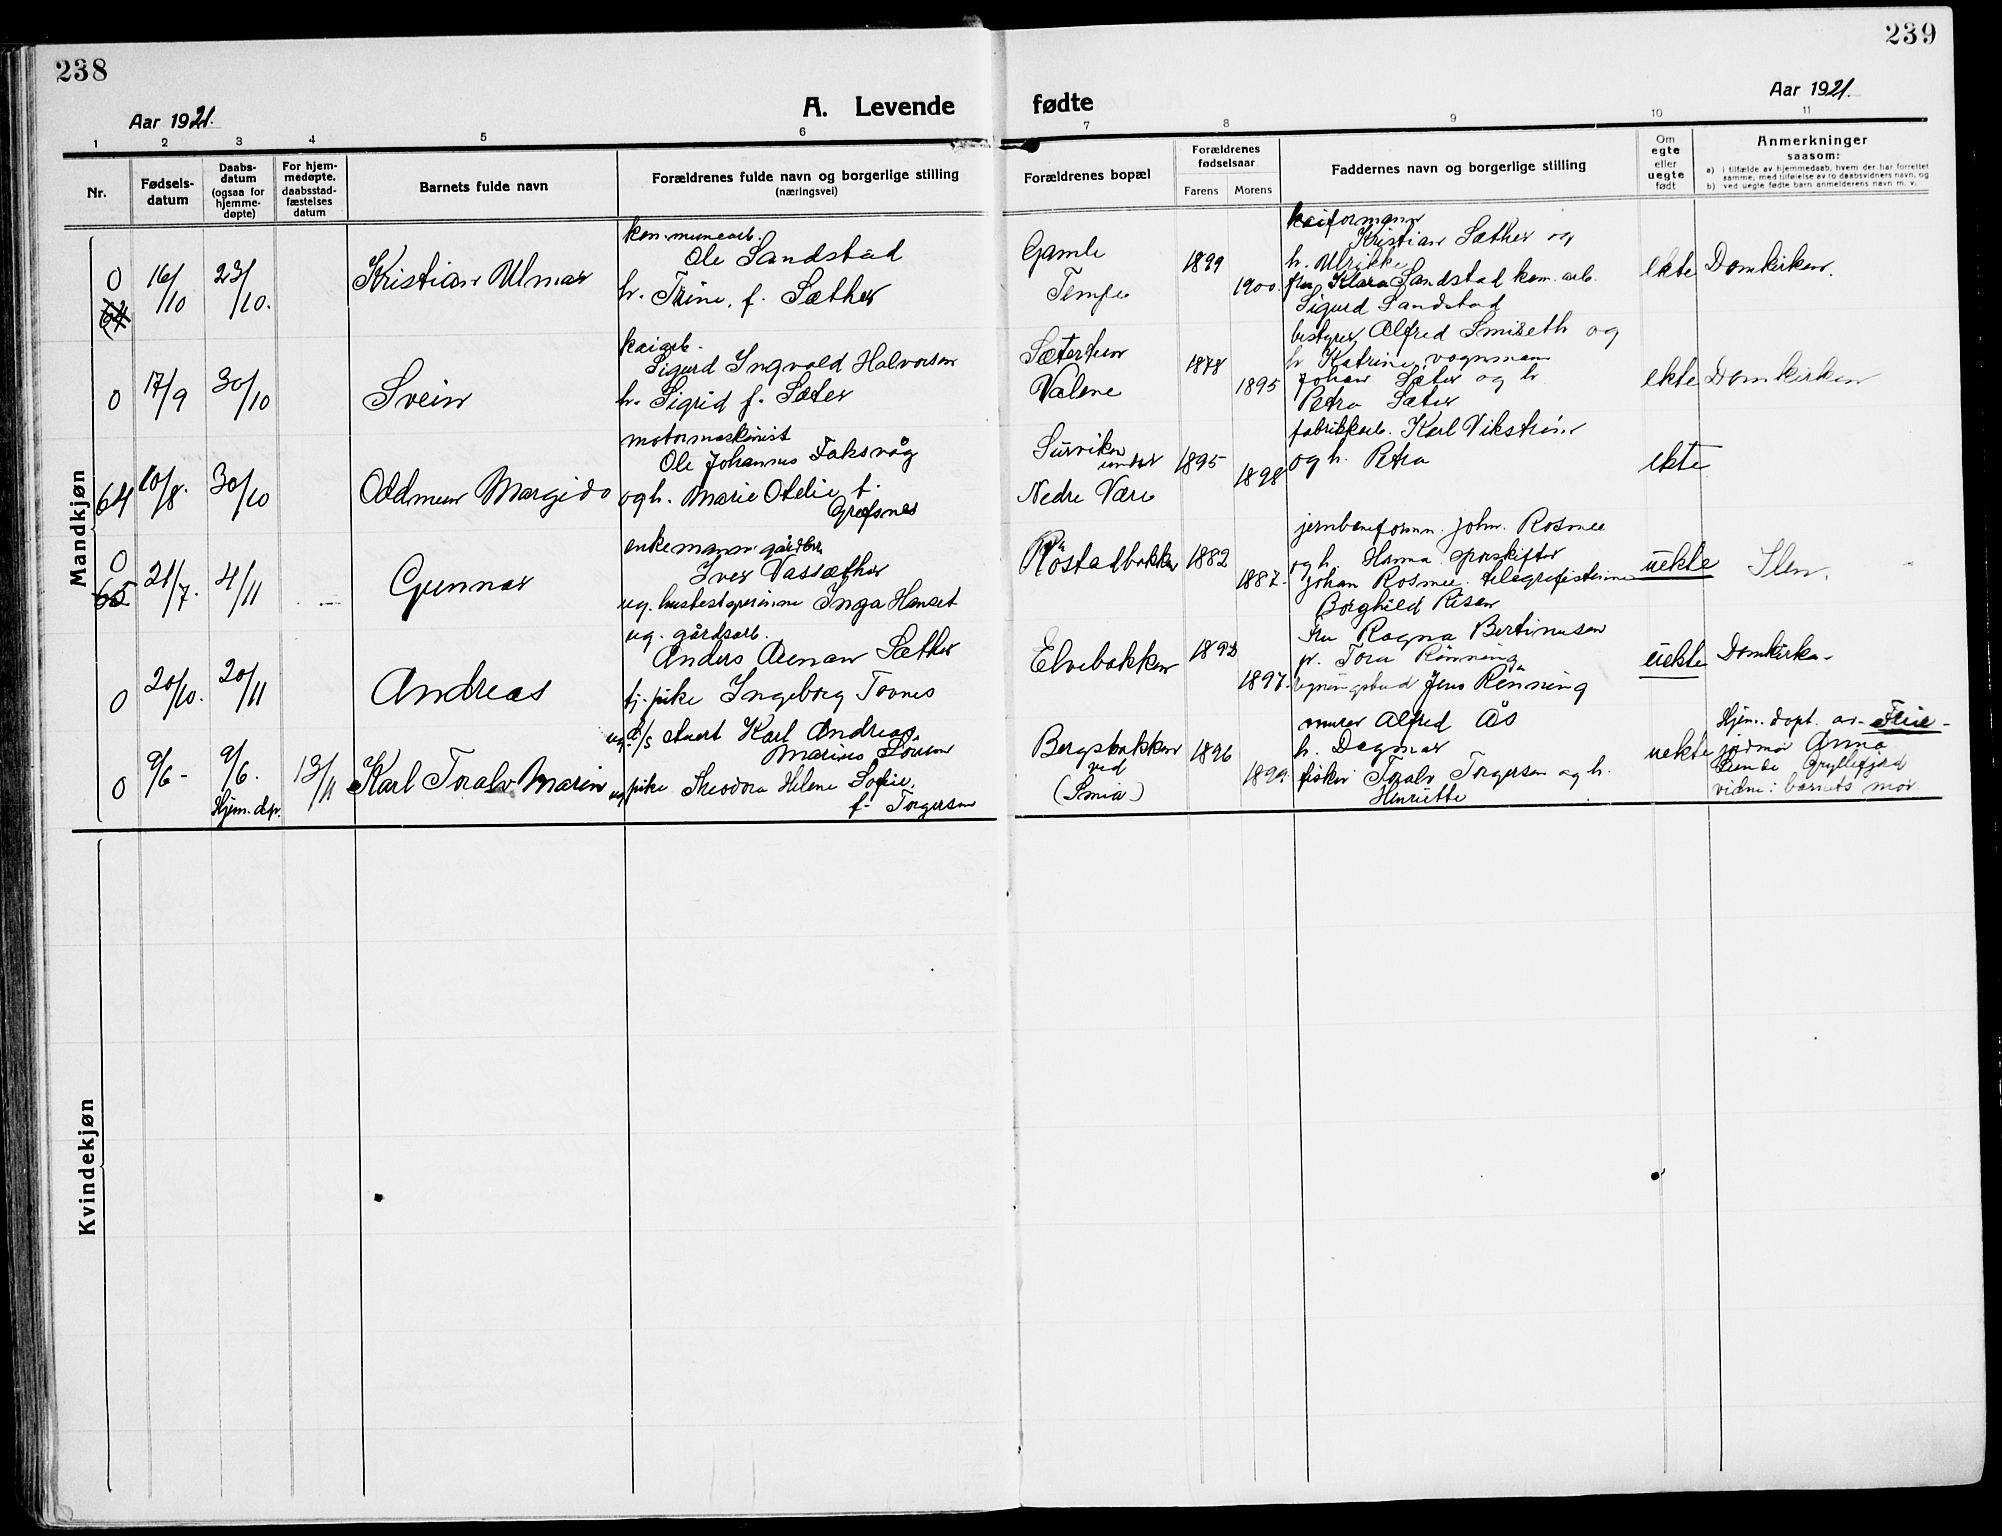 238
239
Aar 1921.
A. Levende fødte
Aar 1921.
1 2 3 4 5 6 7 8 9 10 11
Nr.
Fødsels-
datum
Daabs-
datum
(ogsaa for
hjemme-
døpte)
For hjem-
medøpte,
daabsstad-
fæstelses
datum
Barnets fulde navn
Forældrenes fulde navn og borgerlige stilling
(næringsvei)
Forældrenes bopæl
Forældrenes
fødselsaar
Farens Morens
Faddernes navn og borgerlige stilling
Om
egte
eller
uegte
født
Anmerkninger
saasom:
a) i tilfælde av hjemmedaab, hvem der har forrettet
samme, med tilføielse av to daabsvidners navn, og
b) ved uegte fødte barn anmelderens navn m. v.
Mandkjøn
0
64
16/10
23/10.
Kristian Ulmar
kommunearb.
Ole Sandstad
h. Trine f. Sæther
Gamle
Tempe
1899
1900.
kaiformann
Kristian Sæther og
h. Ulrikke
fru Klara Sandstad kom. arb.
Sigurd Sandstad
ekte
Domkirken.
0
17/9
30/10
Svein
kaiarb.
Sigurd Ingvald Halvorsen
h. Sigrid f. Sæter
Valene
1878
1895
bestyrer Alfred Smiseth og
h. Katrine, vognmann
Johan Sæter og h.
Petra Sæter
ekte
Domkirken
64
10/8.
30/10
Oddmun Margido
motormaskinist
Ole Johannes Faksvåg
og h. Marie Otelie f.
Grefsnes
Surviken
under
Nedre Være
1895
1898
fabrikkarb. Karl Vikstrøm
og h. Petra
ekte
0
65
21/7.
4/11
Gunnar
enkemann gårdbr.
Iver Vassæther
ug. husbestyrerinne Inga Hanset
Rostadbakken
1882
1887.
jernbaneformn. John. Rosmee
og h. Hanna sporskifter
Johan Rosmee. telegrafistinne
Borghild Risen
uekte
Ilen.
0
20/10.
20/11
Andreas
ug. gårdsarb.
Anders Arenan Sæther
tj. pike Ingeborg Tovnes
Elvebakken
1892
1897.
Fru Ragna Bertinusen
fr. Tora Rønning
Jens Rønning
uekte
Domkirke-
0
9/6-
9/6.
Hjem. dp.
13/11
Karl Toralv Marin
ug. Karl Andreas
Marius Sørum
ug. pike Theodora Helene Sofie
f. Torgersen
Bergsbakken
ved
(Smia)
1896
1899
murer Alfred Ås
h. Dagmar
fisker Toralv Torgersen og h.
Henriette
uekte
Hjem. døpt av
jordmor Anna
Gryllefjord
vidne: barnets mor
Kvindekjøn